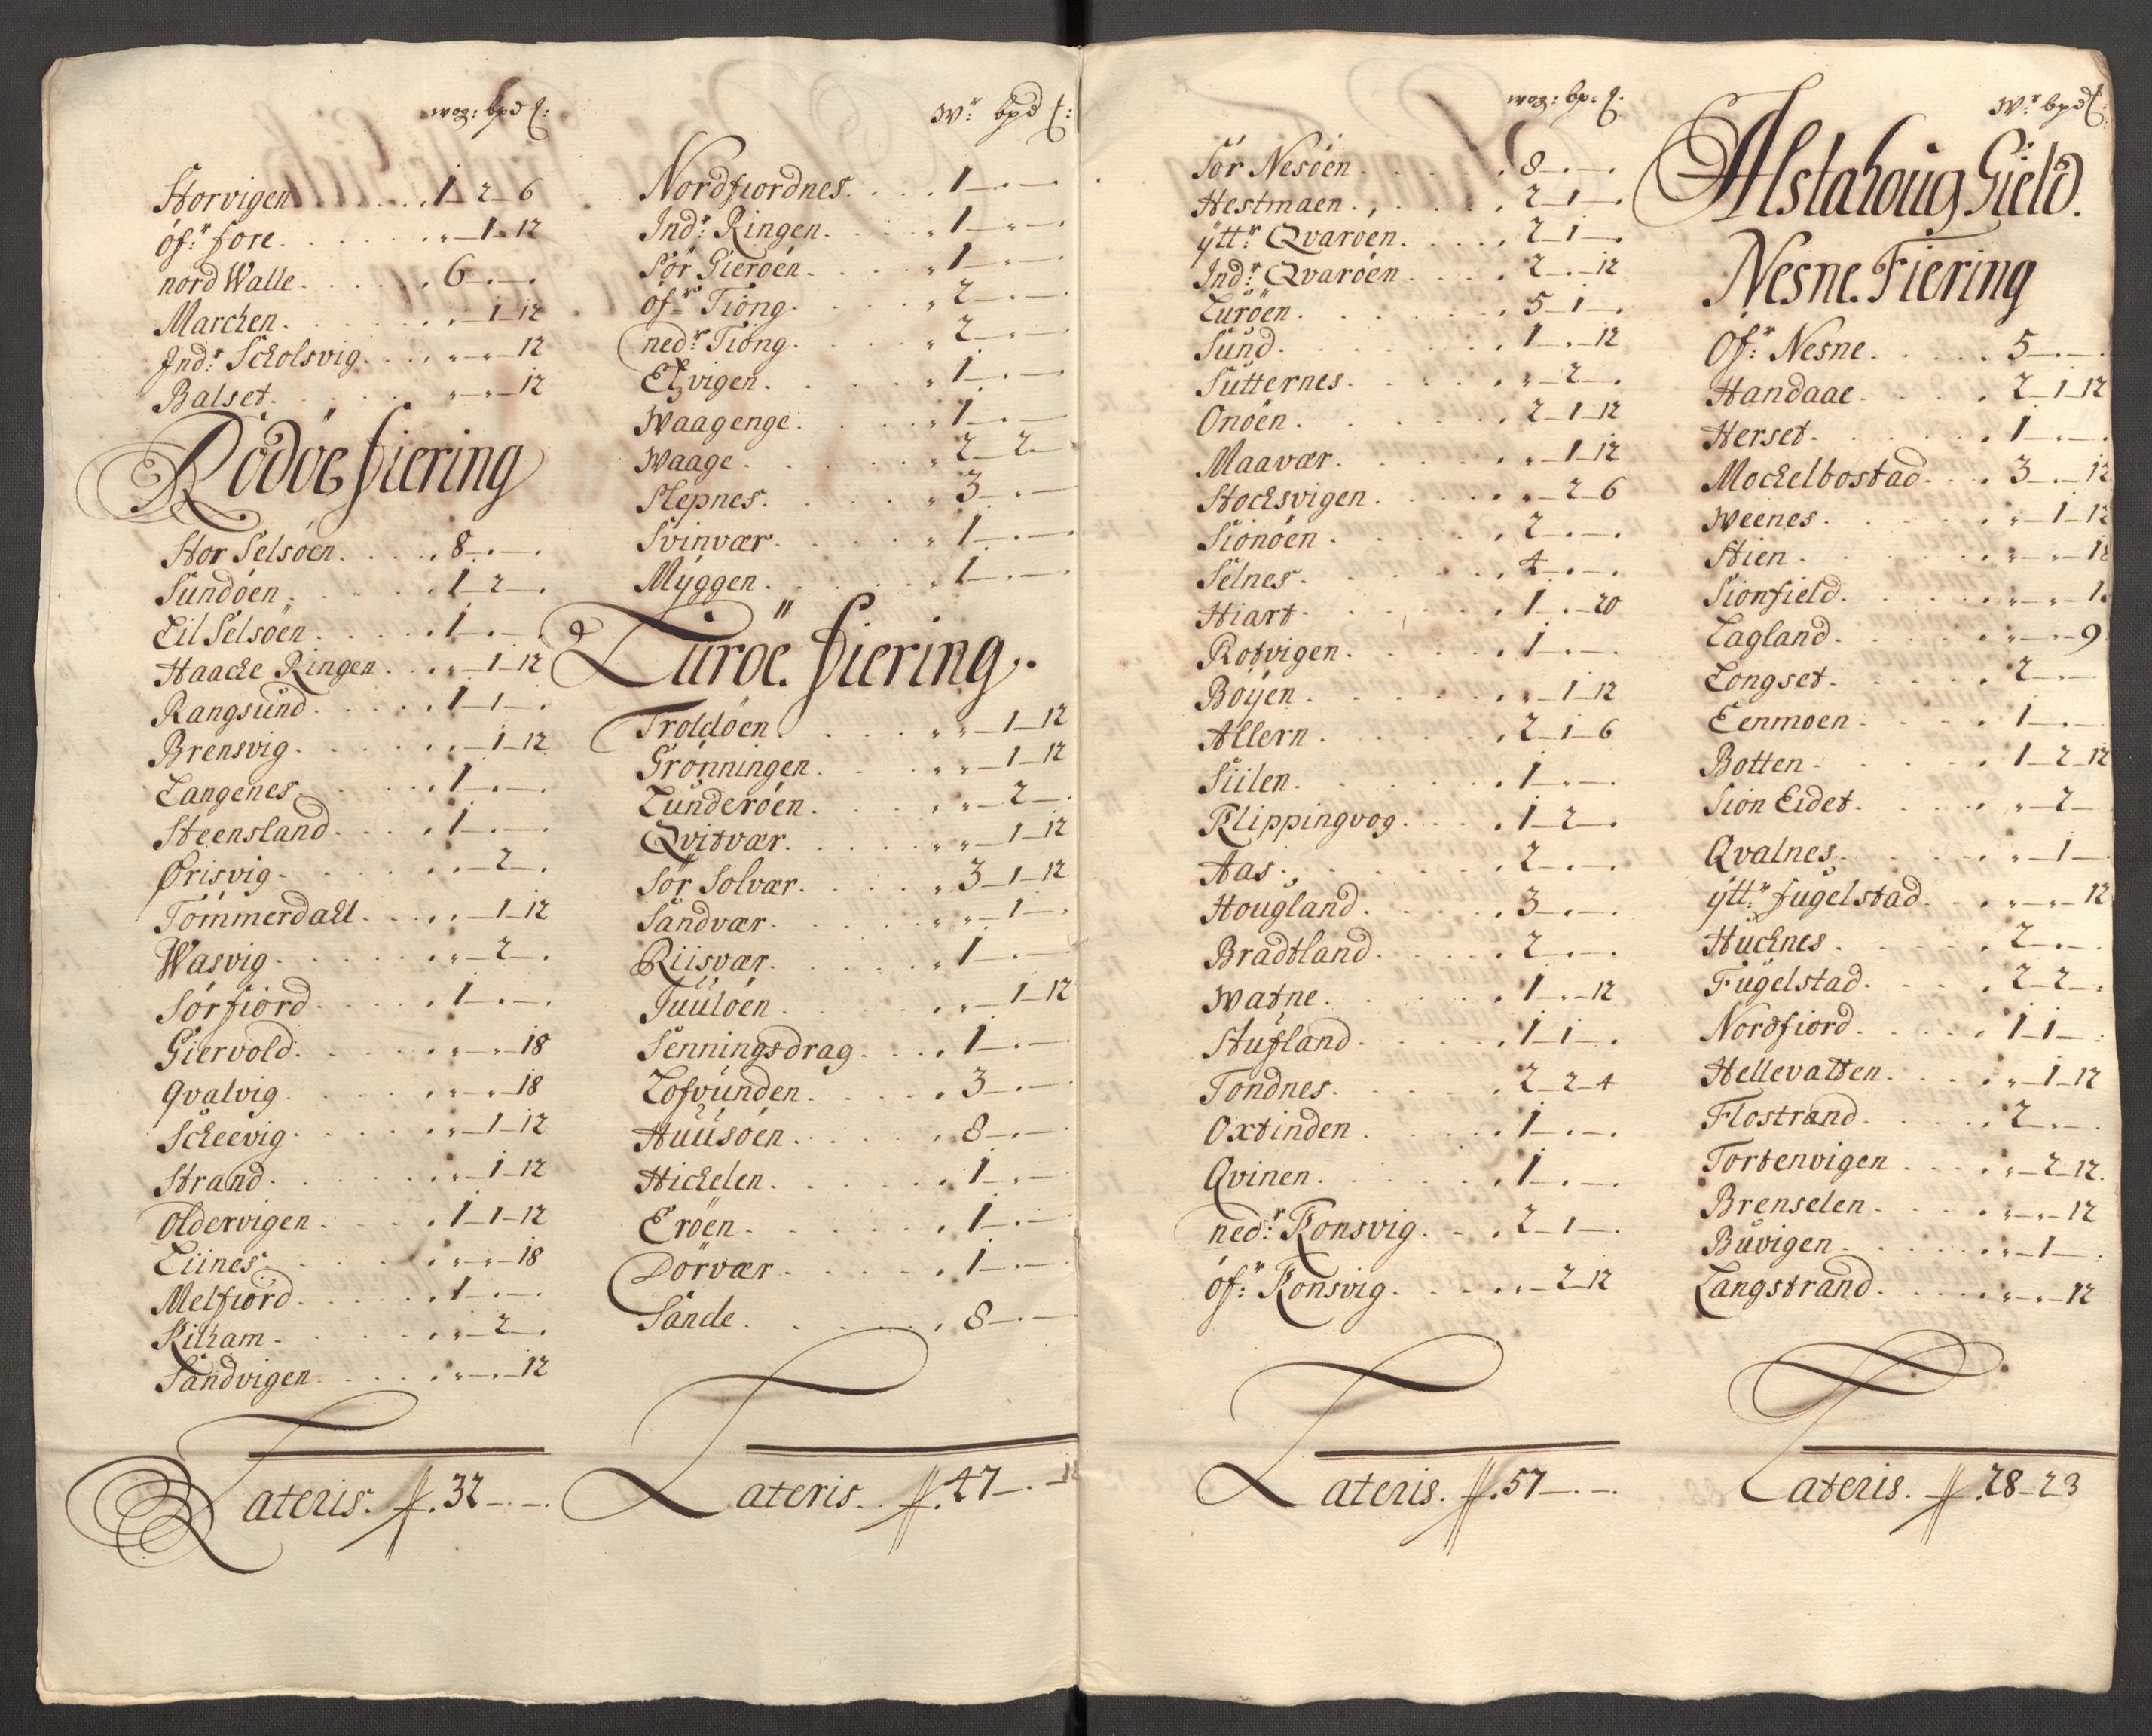 wog: bpd ℔:
Storvigen . . . . . 1 - 2 - 6
öf:r fore . . . . . „ - 1 - 12
nord Walle . . . . . 6 - „ - „
Marchen . . . . . „ - 1 - 12
Ind:r Scholsvig . . . . „ - „ - 12
Balset . . . . . „ - „ - 12
Rödöe fiering
Stor Selsöen . . . . 8 - „ - „
Sundöen . . . . . 1 - 2 - „
Lil Selsöen . . . . . 1 - „ - „
Haache Ringen . . . „ - 1 - 12
Rangsund . . . . . 1 - 1 - „
Brensvig . . . . . „ - 1 - 12
Langenes . . . . . 1 - „ - „
Steensland . . . . 1 - „ - „
Ørisvig . . . . . „ - 2 - „
Tömmerdahl . . . . „ - 1 - 12
Wasvig . . . . . „ - 2 - „
Sörfiord . . . . . 1 - „ - „
Giervold . . . . . „ - „ - 18
Qvalvig . . . . . „ - „ - 18
Scheevig . . . . . „ - 1 - 12
Strand . . . . . „ - 1 - 12
Oldervigen . . . . 1 - 1 - 12
Liines . . . . . „ - „ - 18
Melfiord . . . . . 1 - „ - „
Kilham . . . . . „ - 2 - „
Sandvigen . . . . . „ - „ - 12
Lateris . 32 - „ - „
W:r bpd ℔:
Nordfiordnes . . . . 1 - „ - „
Ind:r Ringen . . . . 1 - „ - „
Sör Gieröen . . . . 1 - „ - „
öf:r Tiong . . . . . 2 - „ - „
ned:r Tiong . . . . 2 - „ - „
Elvigen . . . . . 1 - „ - „
Waagenge . . . . . 1 - „ - „
Waage . . . . . 2 - 2 - „
Slepnes . . . . . 3 - „ - „
Svinvær . . . . . 1 - „ - „
Myggen . . . . . 1 - „ - „
Luröe. fiering.
Troldöen . . . . . „ - 1 - 12
Grönningen . . . . „ - 1 - 12
Lunderöen . . . . . „ - 2 - „
Qvitvær . . . . . „ - 1 - 12
Sör Solvær . . . . 3 - 1 - 12
Sandvær . . . . . „ - 1 - „
Riisvær . . . . . 1 - „ - „
Tuulöen . . . . . „ - 1 - 12
Senningsdrag . . . . 1 - „ - „
Lofvunden . . . . . 3 - „ - „
Huusöen . . . . . 8 - „ - „
Hichelen . . . . . 1 - „ - „
Eröen . . . . . 1 - „ - „
Dörvær . . . . . 1 - „ - „
Sande . . . . . 8 - „ - „
Lateris . 47 - „ - 12
wog: bp: ℔.
Sör Nesöen . . . . 8 - „ - „
Hestmaen . . . . . 2 - 1 - „
ytt:r Qvaröen . . . . 2 - 1 - „
Ind:r Qvaröen . . . . 2 - „ - 12
Luröen . . . . . 5 - 1 - „
Sund . . . . . 1 - „ - 12
Sutternes . . . . . „ - 2 - „
Onöen . . . . . 2 - 1 - 12
Maavær . . . . . „ - 1 - 12
Stochsvigen . . . . „ - 2 - 6
Sionöen . . . . . 2 - „ - „
Selnes . . . . . 4 - „ - „
Hiart . . . . . 1 - „ - 20
Rotvigen . . . . . 1 - „ - „
Böyen . . . . . „ - 1 - 12
Allern . . . . . 2 - 1 - 6
Siilen . . . . . 1 - „ - „
Klippingvog . . . . 1 - 2 - „
Aas . . . . . 2 - „ - „
Hougland . . . . . 3 - „ - „
Bradtland . . . . . 2 - „ - „
Watne . . . . . 1 - „ - 12
Stufland . . . . . 1 - 1 - „
Tondnes . . . . . 2 - 2 - 4
Oxtinden . . . . . 1 - „ - „
Qvinen . . . . . 1 - „ - „
ned:r Konsvig . . . . 2 - 1 - „
öf:r Konsvig . . . . „ - 2 - 12
Lateris . 57 - „ - „
W:r bpd ℔:
Alstahoug Gield.
Nesne. Fiering
Öf:r Nesne . . . . . 5 - „ - „
Handaae . . . . . 2 - 1 - 12
Herset . . . . . 1 - „ - „
Mochelbostad . . . . 3 - „ - 12
Weenes . . . . . „ - 1 - 12
Stien . . . . . „ - „ - 18
Sionfield . . . . . „ - „ -
Lagland . . . . . „ - „ - 9
Longset . . . . . 2 - „ - „
Eenmoen . . . . . 1 - „ - „
Botten . . . . . 1 - 2 - 12
Sion Eidet . . . . . „ - 2 - „
Qvalnes . . . . . „ - 1 - „
ytt:r fugelstad . . . „ - „ - 12
Huchnes . . . . . 2 - „ - „
Fugelstad . . . . . 2 - 2 - „
Nordfiord . . . . . 1 - 1 - „
Hellevatten . . . . „ - 1 - 12
Flostrand . . . . . 2 - „ - „
Tortenvigen . . . . „ - 2 - 12
Brenselen . . . . . „ - „ - 12
Buvigen . . . . . „ - 1 - „
Langstrand . . . . . „ - „ - 12
Lateris . 28 - 2 3